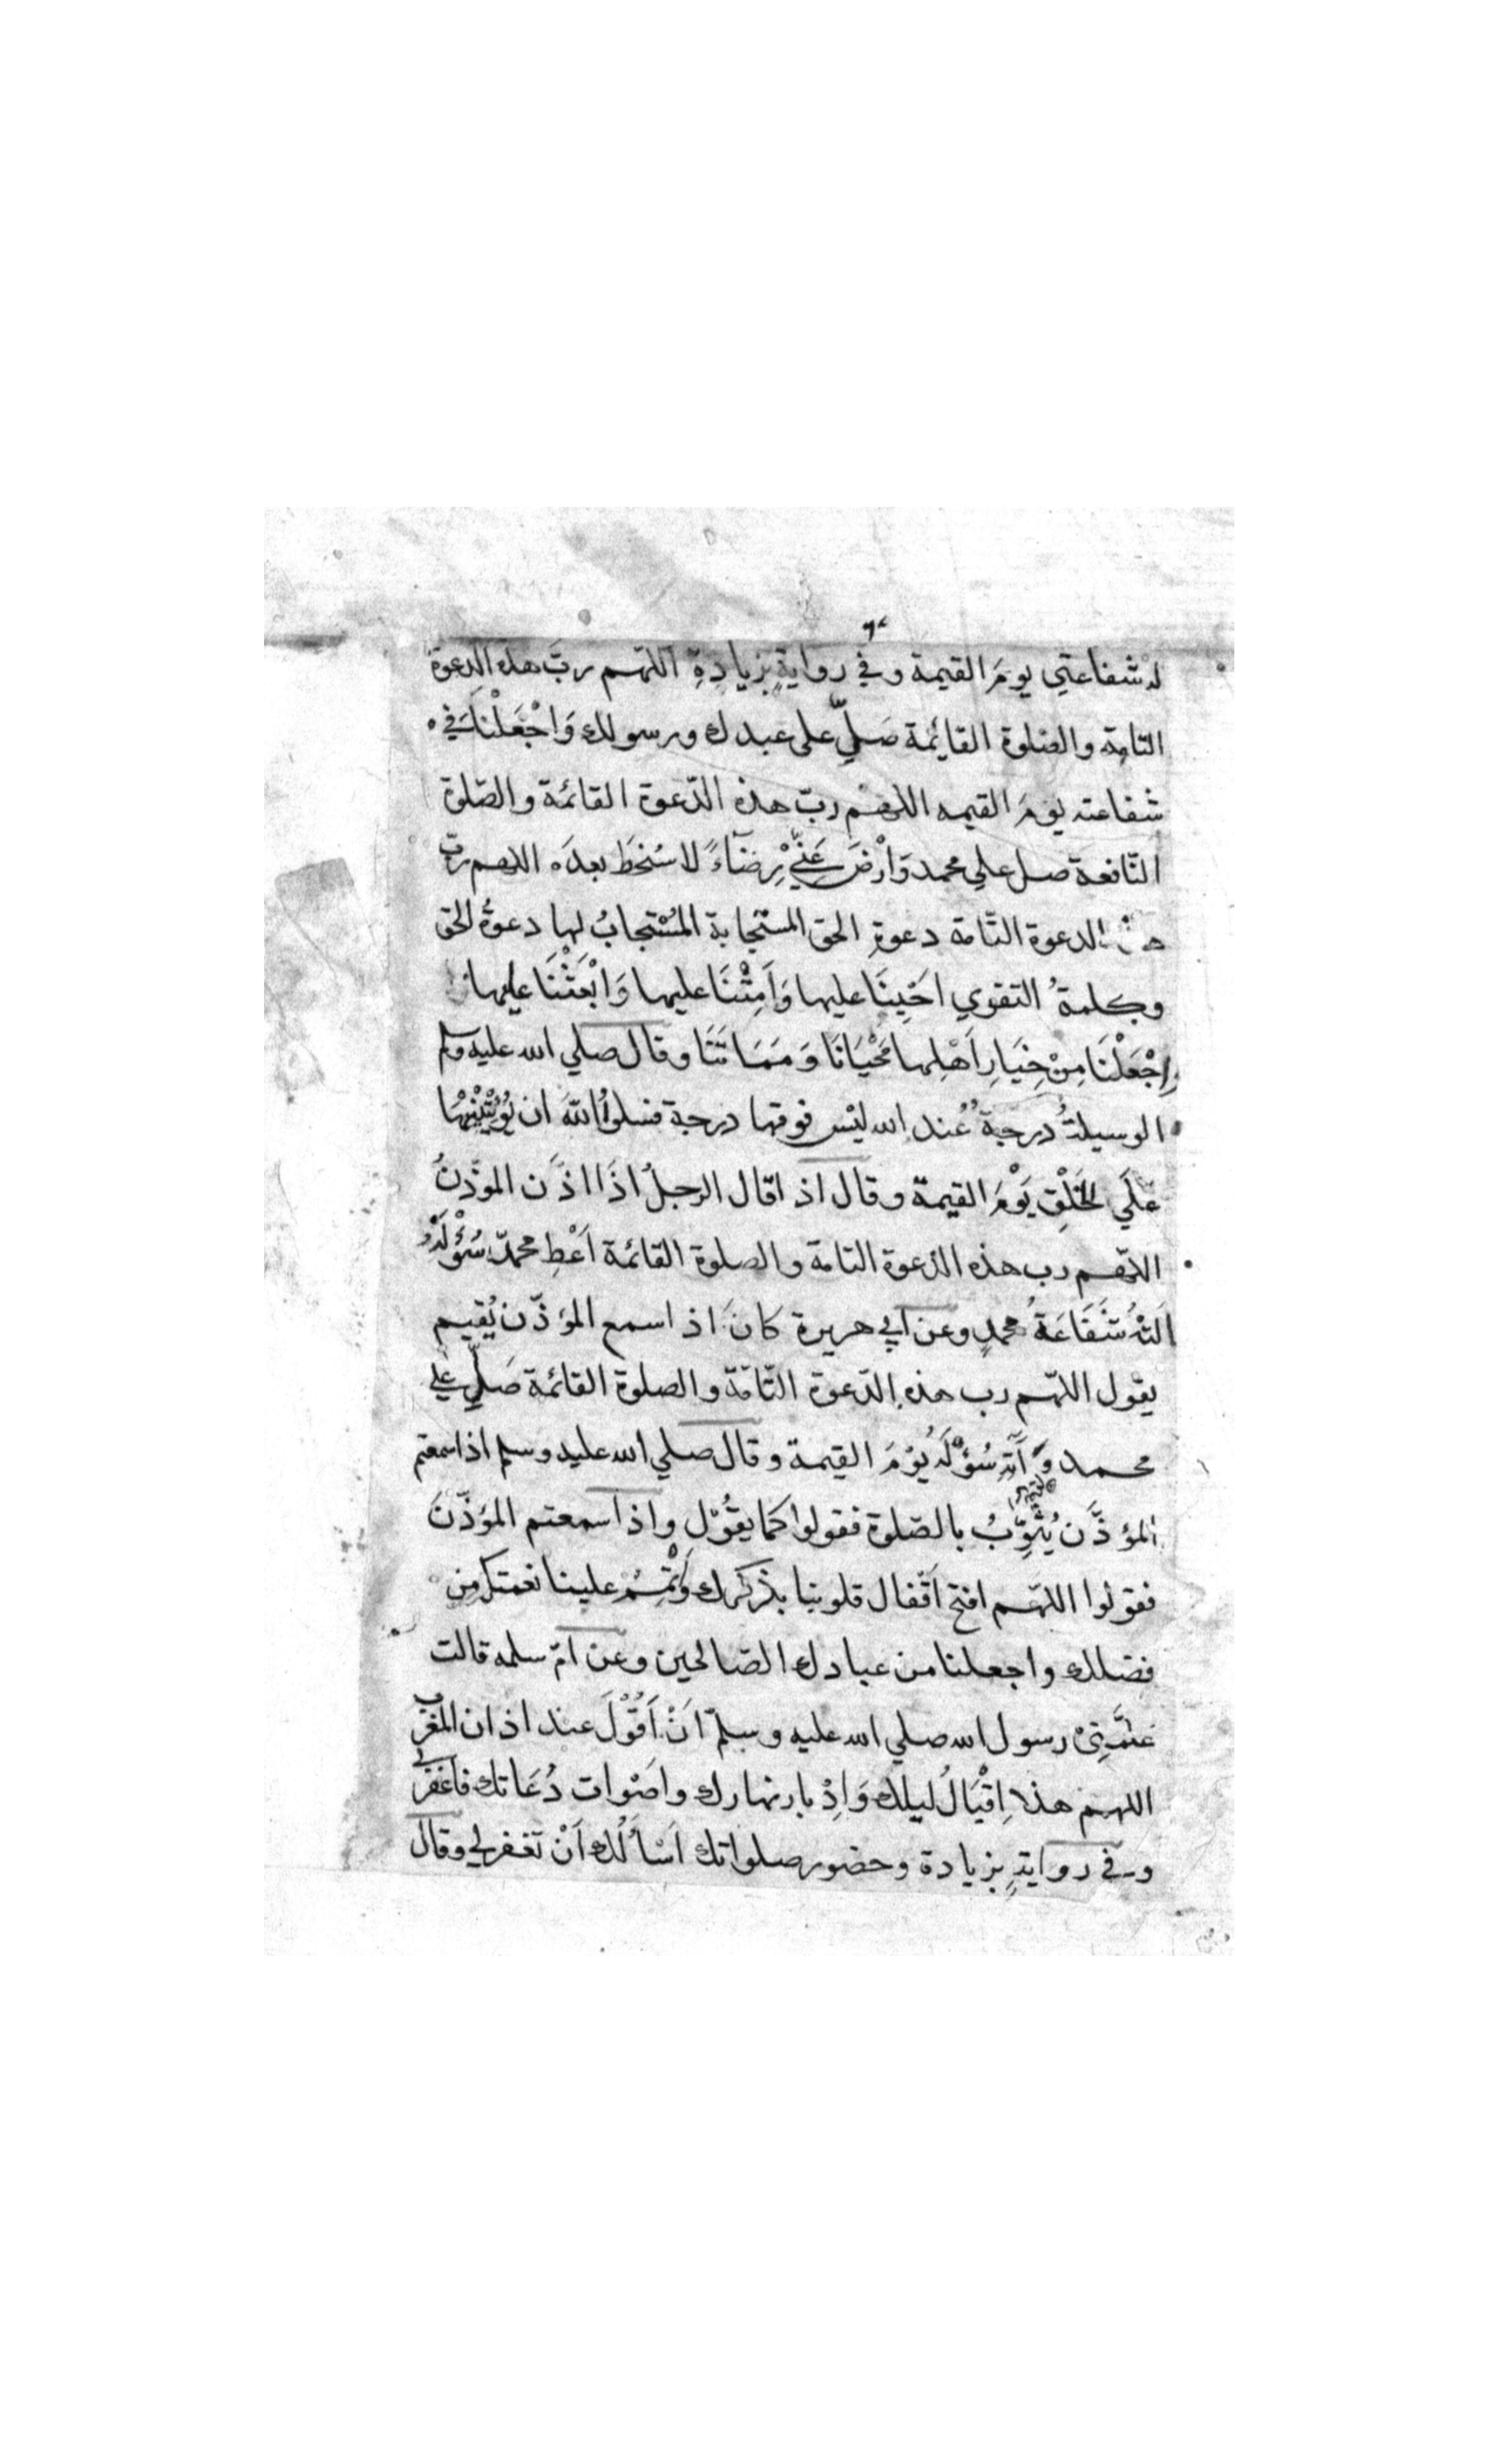 له شفاعتي يومَ القيمة وفي روايةٍ بزيادةِ اللهم ربَّ هذه الدعوة
التامة والصلوة القايمة صَلِّ على عبدك ورسولك وَاجْعَلْنَا في
شفاعته يومَ القيمه اللهم ربّ هذه الدّعوة القائمة والصّلوة
النّافعة صل علي محمد وَارْضَ عَنِّيْ رِضَاءً لا سُخطَ بعدَه اللهم ربّ
هذه الدعوة التّامة دعوةِ الحق المستجابة المُسْتجابُ لها دعوةُ الحق
وكلمةُ التقوي احْيِنَا عليها وَاَمِتْنَا عليها وَابْعَثْنَا عليها
وِاجْعَلْنَا مِنْ خِيَارِ اَهْلِها مَحْيَانَا وَمَمَاتَنَا وقال صلي الله عليه وسلم
الوسيلةُ درجةٌ عُند الله ليْس فوقها درجة فسلوُا اللهَ ان يُؤْتِيْنِيْهَا
عَلَي الخَلْقِ يَوْمَ القيمة وقال اذا قال الرجلُ اذَا اذَّن الموذّنُ
اللّهم رب هذه الدّعوة التامة والصلوة القائمة اَعْطِ محمدّ سُؤْلَهُ
شَفَاعَةُ محمدٍ وعن ابي هريرة كانَ اذا سمع المؤذّن يُقيم
يقول اللّهم رب هذه الدّعوة التّامّة والصلوة القائمة صَلِّ علي
محمد وَآتِهِ سُؤْلَهُ يَوْمَ القيمة وقال صلي الله عليه وسلم اذا سمعتم
المؤذَّن يُثَوِّبُ بالصّلوة فقولوا كمَا يقُوْل واذا سمعتم المؤذّنَ
فقولوا اللهّم افتح اَقْفال قلوبنا بذكرك وَتْمِمْ علينا نعمتك مِن
فضلك واجعلنا من عبادك الصّالحين وعن امّ سلمه قالت
عَلَّمَنِيْ رسول الله صلي الله عليه وسلّم اَنْ اَقُوْلَ عند اذان المغرب
اللهم هذا اِقْبَالُ ليلك وَاِدْبار نهارك واصَوات دُعَاتك فاغفر لي
وفي روايةٍ بزيادة وحضور صلواتك اَسْأَلُك اَنْ تغفر لي وقال